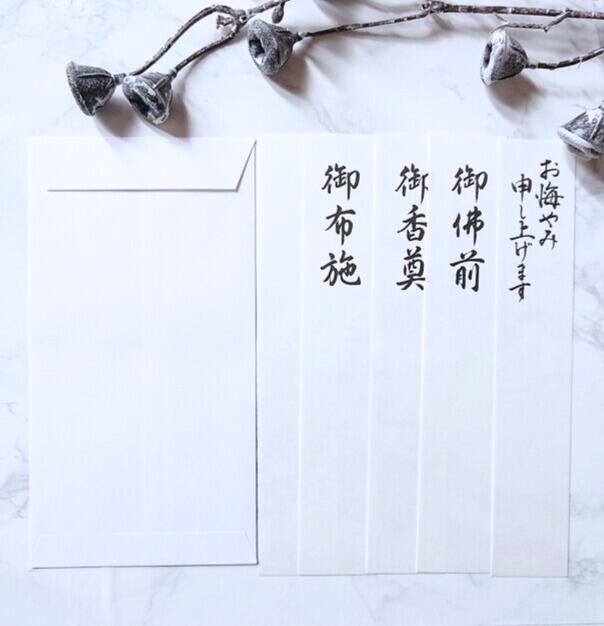 お悔やみ
申し上げます
御佛前
御香奠
御布施